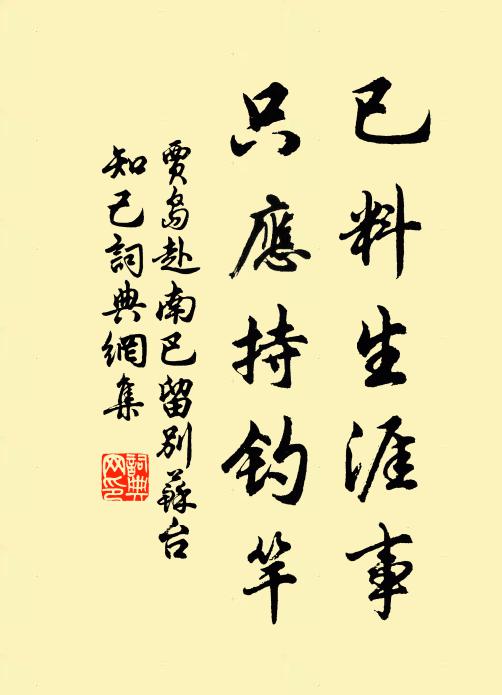 已料生涯事
只應持釣竿
賈島赴南巴留別蘇台
知己詞典網集
詞典
网印